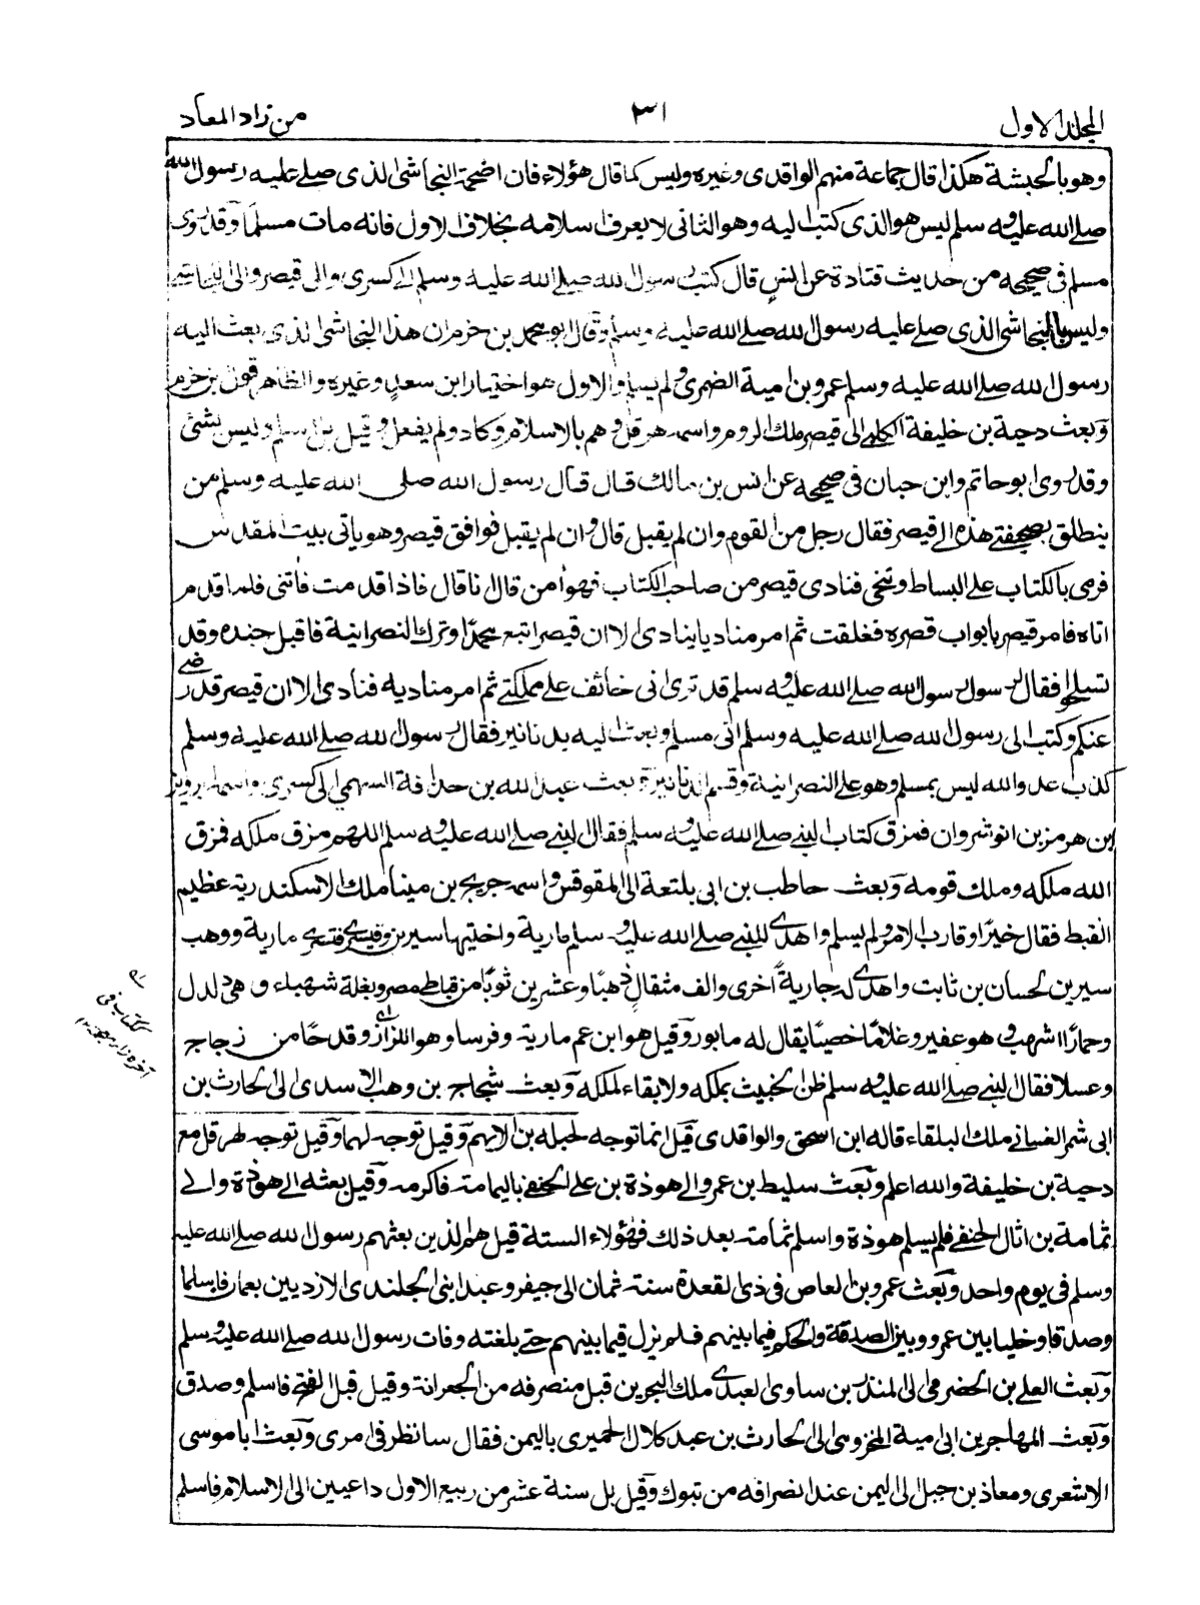 المجلد الاول
٣١
من زاد المعاد
وهو بالحبشة هكذا قال جماعة منهم الواقدى وغيره وليس كما قال هؤلاء فان اضحمة النجاشى الذى صلے عليه رسول الله
صلے الله عليه وسلم ليس هو الذى كتب اليه وهو الثانى لا يعرف اسلامه بخلاف الاول فانه مات مسلمًا وقد روى
مسلم فى صحيحه من حديث قتادة عن انس قال كتب رسول الله صلے الله عليه وسلم الے كسرى والى قيصر والى النجاشى
وليس بالنجاشى الذى صلے عليه رسول الله صلے الله عليه وسلم وقال ابو محمد بن حزم ان هذا النجاشى الذى بعث اليه
رسول الله صلے الله عليه وسلم عمرو بن امية الضمرى لم يسلم والاول هو اختيار ابن سعد وغيره والظاهر قول بن حزم
وبعث دحية بن خليفة الكلبى الى قيصر ملك الروم واسمه هرقل وهم بالاسلام وكاد ولم يفعل وقيل بل اسلم وليس بشئ
وقد روى ابو حاتم وابن حبان فى صحيحه عن انس بن مالك قال قال رسول الله صلى الله عليه وسلم من
ينطلق بصحيفتے هذه الے قيصر فقال رجل من القوم وان لم يقبل قال وان لم يقبل فوافق قيصر وهو ياتى بيت المقدس
فرمى بالكتاب على البساط وتنحى فنادى قيصر من صاحب الكتاب فهو اٰمن قال انا قال فاذا قدمت فأتنى فلما قدم
اتاه فامر قيصر بابواب قصره فغلقت ثم امر مناديا ينادى الا ان قيصر اتبع محمدًا وترك النصرانية فاقبل جنده وقد
تسلحوا فقال لرسول رسول الله صلے الله عليه وسلم قد ترى انى خائف على مملكتے ثم امر مناديه فنادى الا ان قيصر قد رضے
عنكم وكتب الى رسول الله صلے الله عليه وسلم انى مسلم وبعث اليه بدنانير فقال رسول الله صلے الله عليه وسلم
كذب عدو الله ليس بمسلم وهو على النصرانية وقسم الدنانير وبعث عبد الله بن حذافة السهمى الى كسرى واسمه ابرويز
ابن هرمز بن انوشروان فمزق كتاب النبے صلے الله عليه وسلم فقال النبے صلے الله عليه وسلم اللهم مزق ملكه فمزق
الله ملكه وملك قومه وبعث حاطب بن ابى بلتعة الى المقوقس واسمه جريج بن مينا ملك الاسكندرية عظيم
القبط فقال خيرًا وقارب الامر ولم يسلم واهدے للنبے صلے الله عليه وسلم مارية واختيها سيرين وقيسرے فتسرے مارية ووهب
سيرين لحسان بن ثابت واهدے له جارية اخرى والف مثقال ذهبًا وعشرين ثوبًا من قباطى مصر وبغلة شهباء وهى دلدل
وحمارًا اشهب وهو عفير وغلامًا خصيًا يقال له مابور وقيل هو ابن عم مارية وفرسا وهو اللزاز وقدحًا من زجاج
وعسلا فقال النبے صلے الله عليه وسلم ظن الخبيث بملكه ولا بقاء لملكه وبعث شجاع بن وهب الاسدى الى الحارث بن
ابى شمر الغسانے ملك البلقاء قاله ابن اسحق والواقدى قيل انما توجه لجبلة بن الايهم وقيل توجه لهما وقيل توجه لهرقل مع
دحية بن خليفة والله اعلم وبعث سليط بن عمرو الے هوذة بن على الحنفے باليمامة فاكرمه وقيل بعثه الے هوذة والے
ثمامة بن اثال الحنفے فلم يسلم هوذة واسلم ثمامة بعد ذلك فهؤلاء الستة قيل هم الذين بعثهم رسول الله صلے الله عليه
وسلم فى يوم واحد وبعث عمرو بن العاص فى ذى القعدة سنة ثمان الى جيفر وعبد ابنى الجلندى الازديين بعمان فاسلما
وصدقا وخليا بين عمرو وبين الصدقة والحكم فيما بينهم فلم يزل فيما بينهم حتے بلغته وفات رسول الله صلے الله عليه وسلم
وبعث العلے بن الحضرمى الى المنذر بن ساوى العبدے ملك البحرين قبل منصرفه من الجعرانة وقيل قبل الفتح فاسلم وصدق
وبعث المهاجر بن ابى امية المخزومى الى الحارث بن عبد كلال الحميرى باليمن فقال سانظر فى امرى وبعث ابا موسى
الاشعرى ومعاذ بن جبل الى اليمن عند انصرافه من تبوك وقيل بل سنة عشر من ربيع الاول داعيين الى الاسلام فاسلم